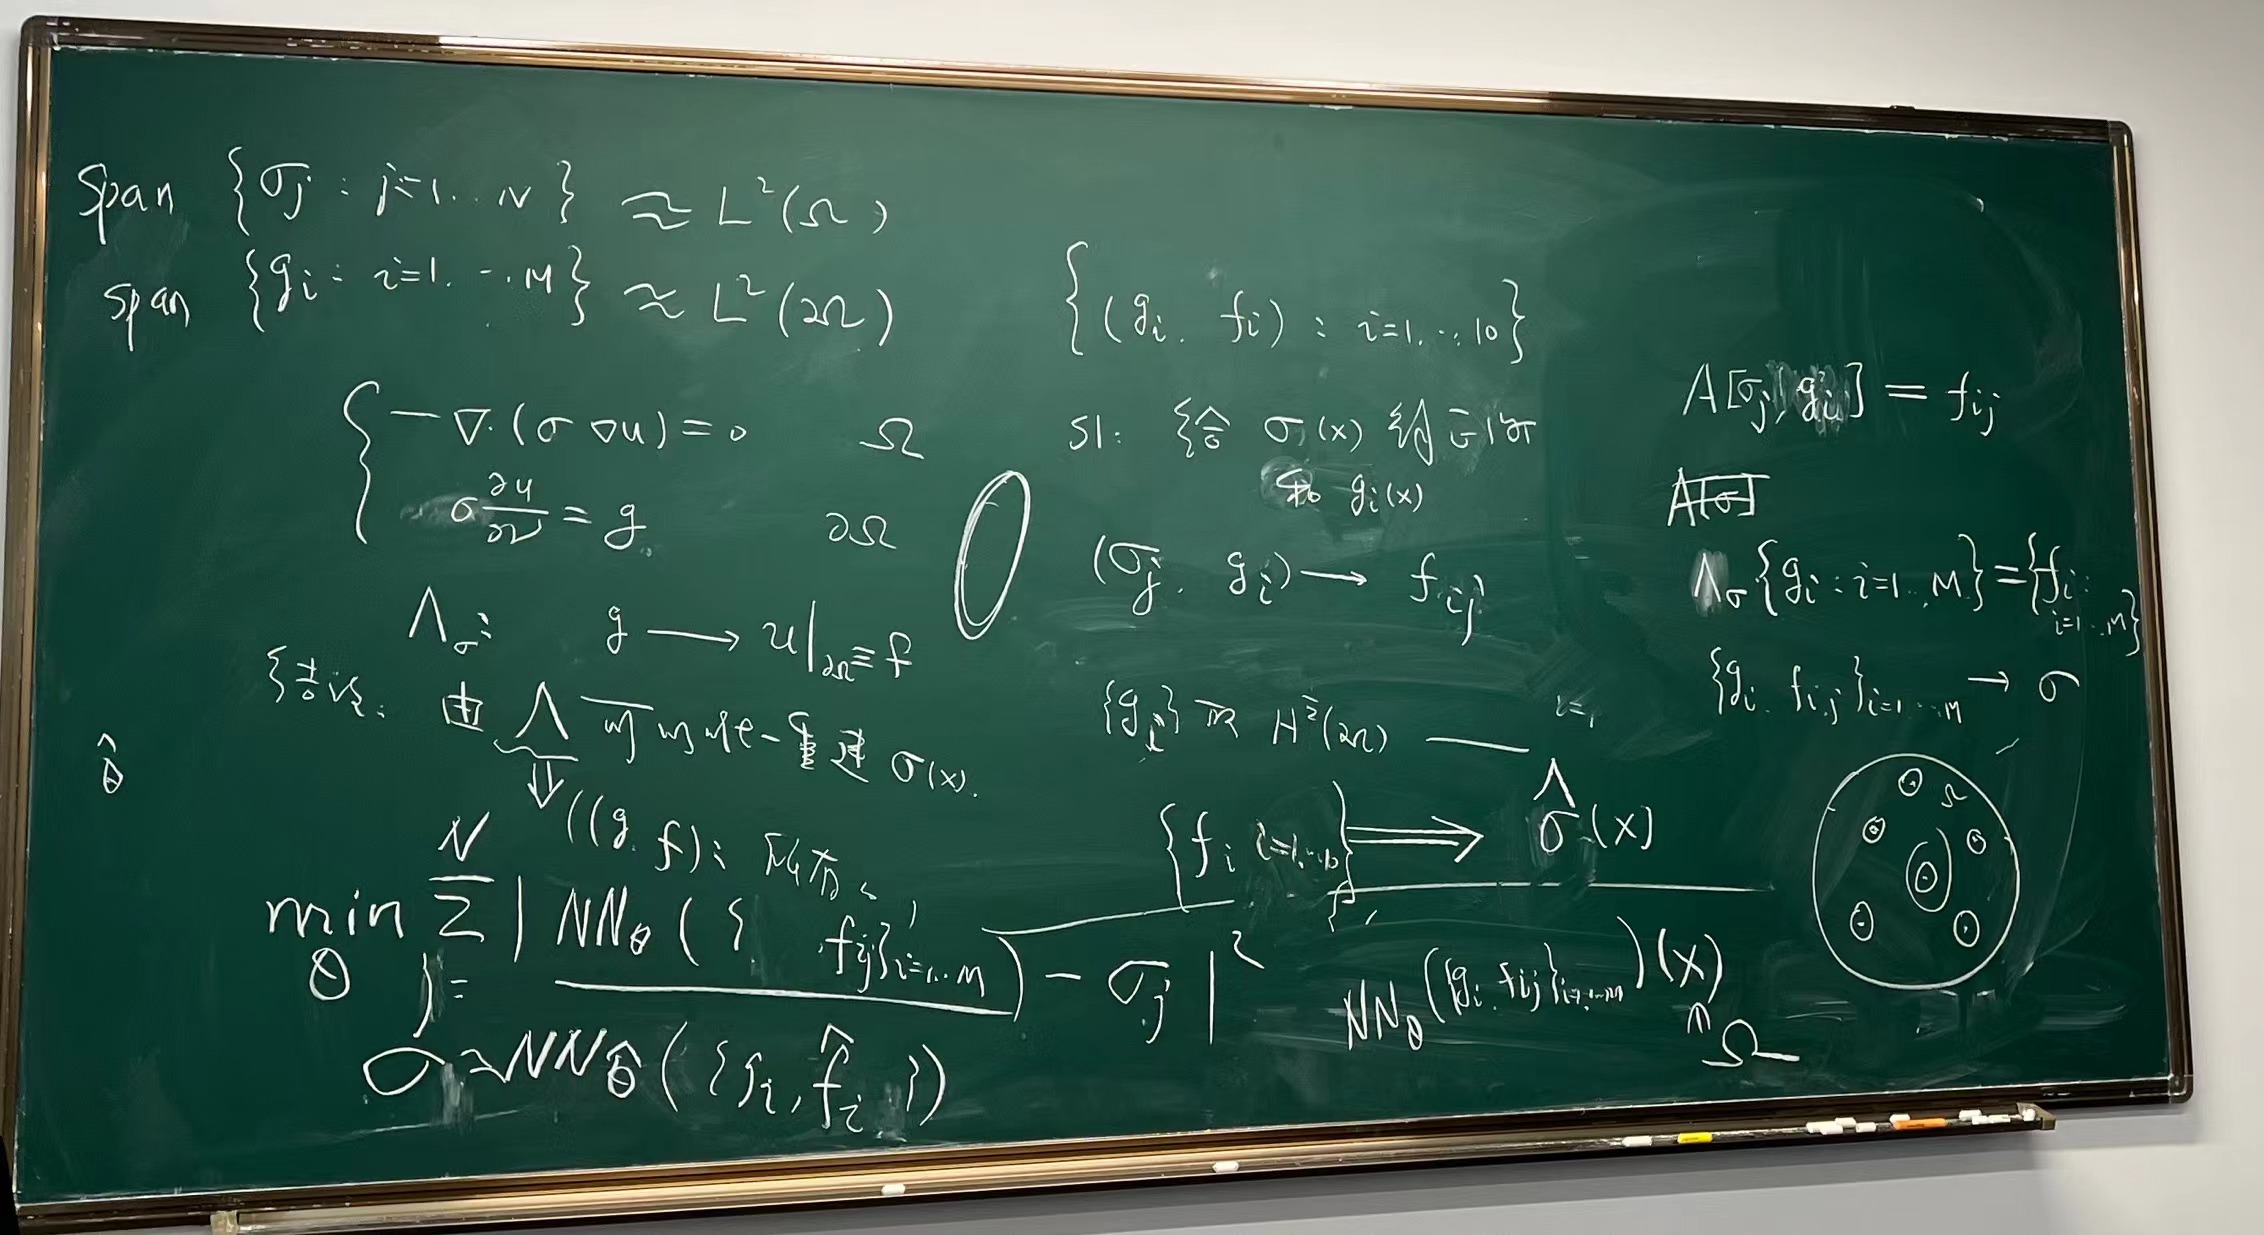 span {σj : j=1...N} ≈ L²(Ω)
span {gi : i=1...M} ≈ L²(∂Ω)
{ -∇·(σ∇u)=0   Ω
σ ∂u/∂ν = g   ∂Ω
Λσ: g → u|∂Ω ≡ f
结论: 由 Λ 可 唯一重建 σ(x).
⇓
((g, f): 所有
θ̂
min_θ Σ_{j=}^{N} | NNθ({ fij}i=1...M) - σj |²
σ ≈ NNθ̂({gi, f̂i})
{(gi, fi) : i=1,...,10}
S1: 给 σ(x) 和 gi(x)
(σj, gi) → fij
{gi} 取 (∂Ω) —
i=1
{fi i=1,...,10} ⟹ σ̂(x)
NNθ({gi, fij}i=1...M)(x)
∩ Ω
A[σj, gi] = fij
A[σ]
Λσ{gi : i=1..M} = {fi : i=1...M}
{gi, fij}i=1...M → σ
Ω